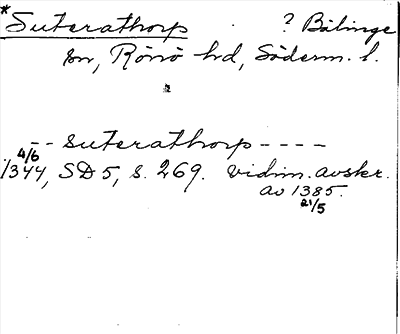 *Suterathorp ? Bälinge
sn, Rönö hd, Söderm. l.
-- suterathorp ----
4/6
1344, SD 5, s. 269. vidim. avskr.
av 1385.
21/5